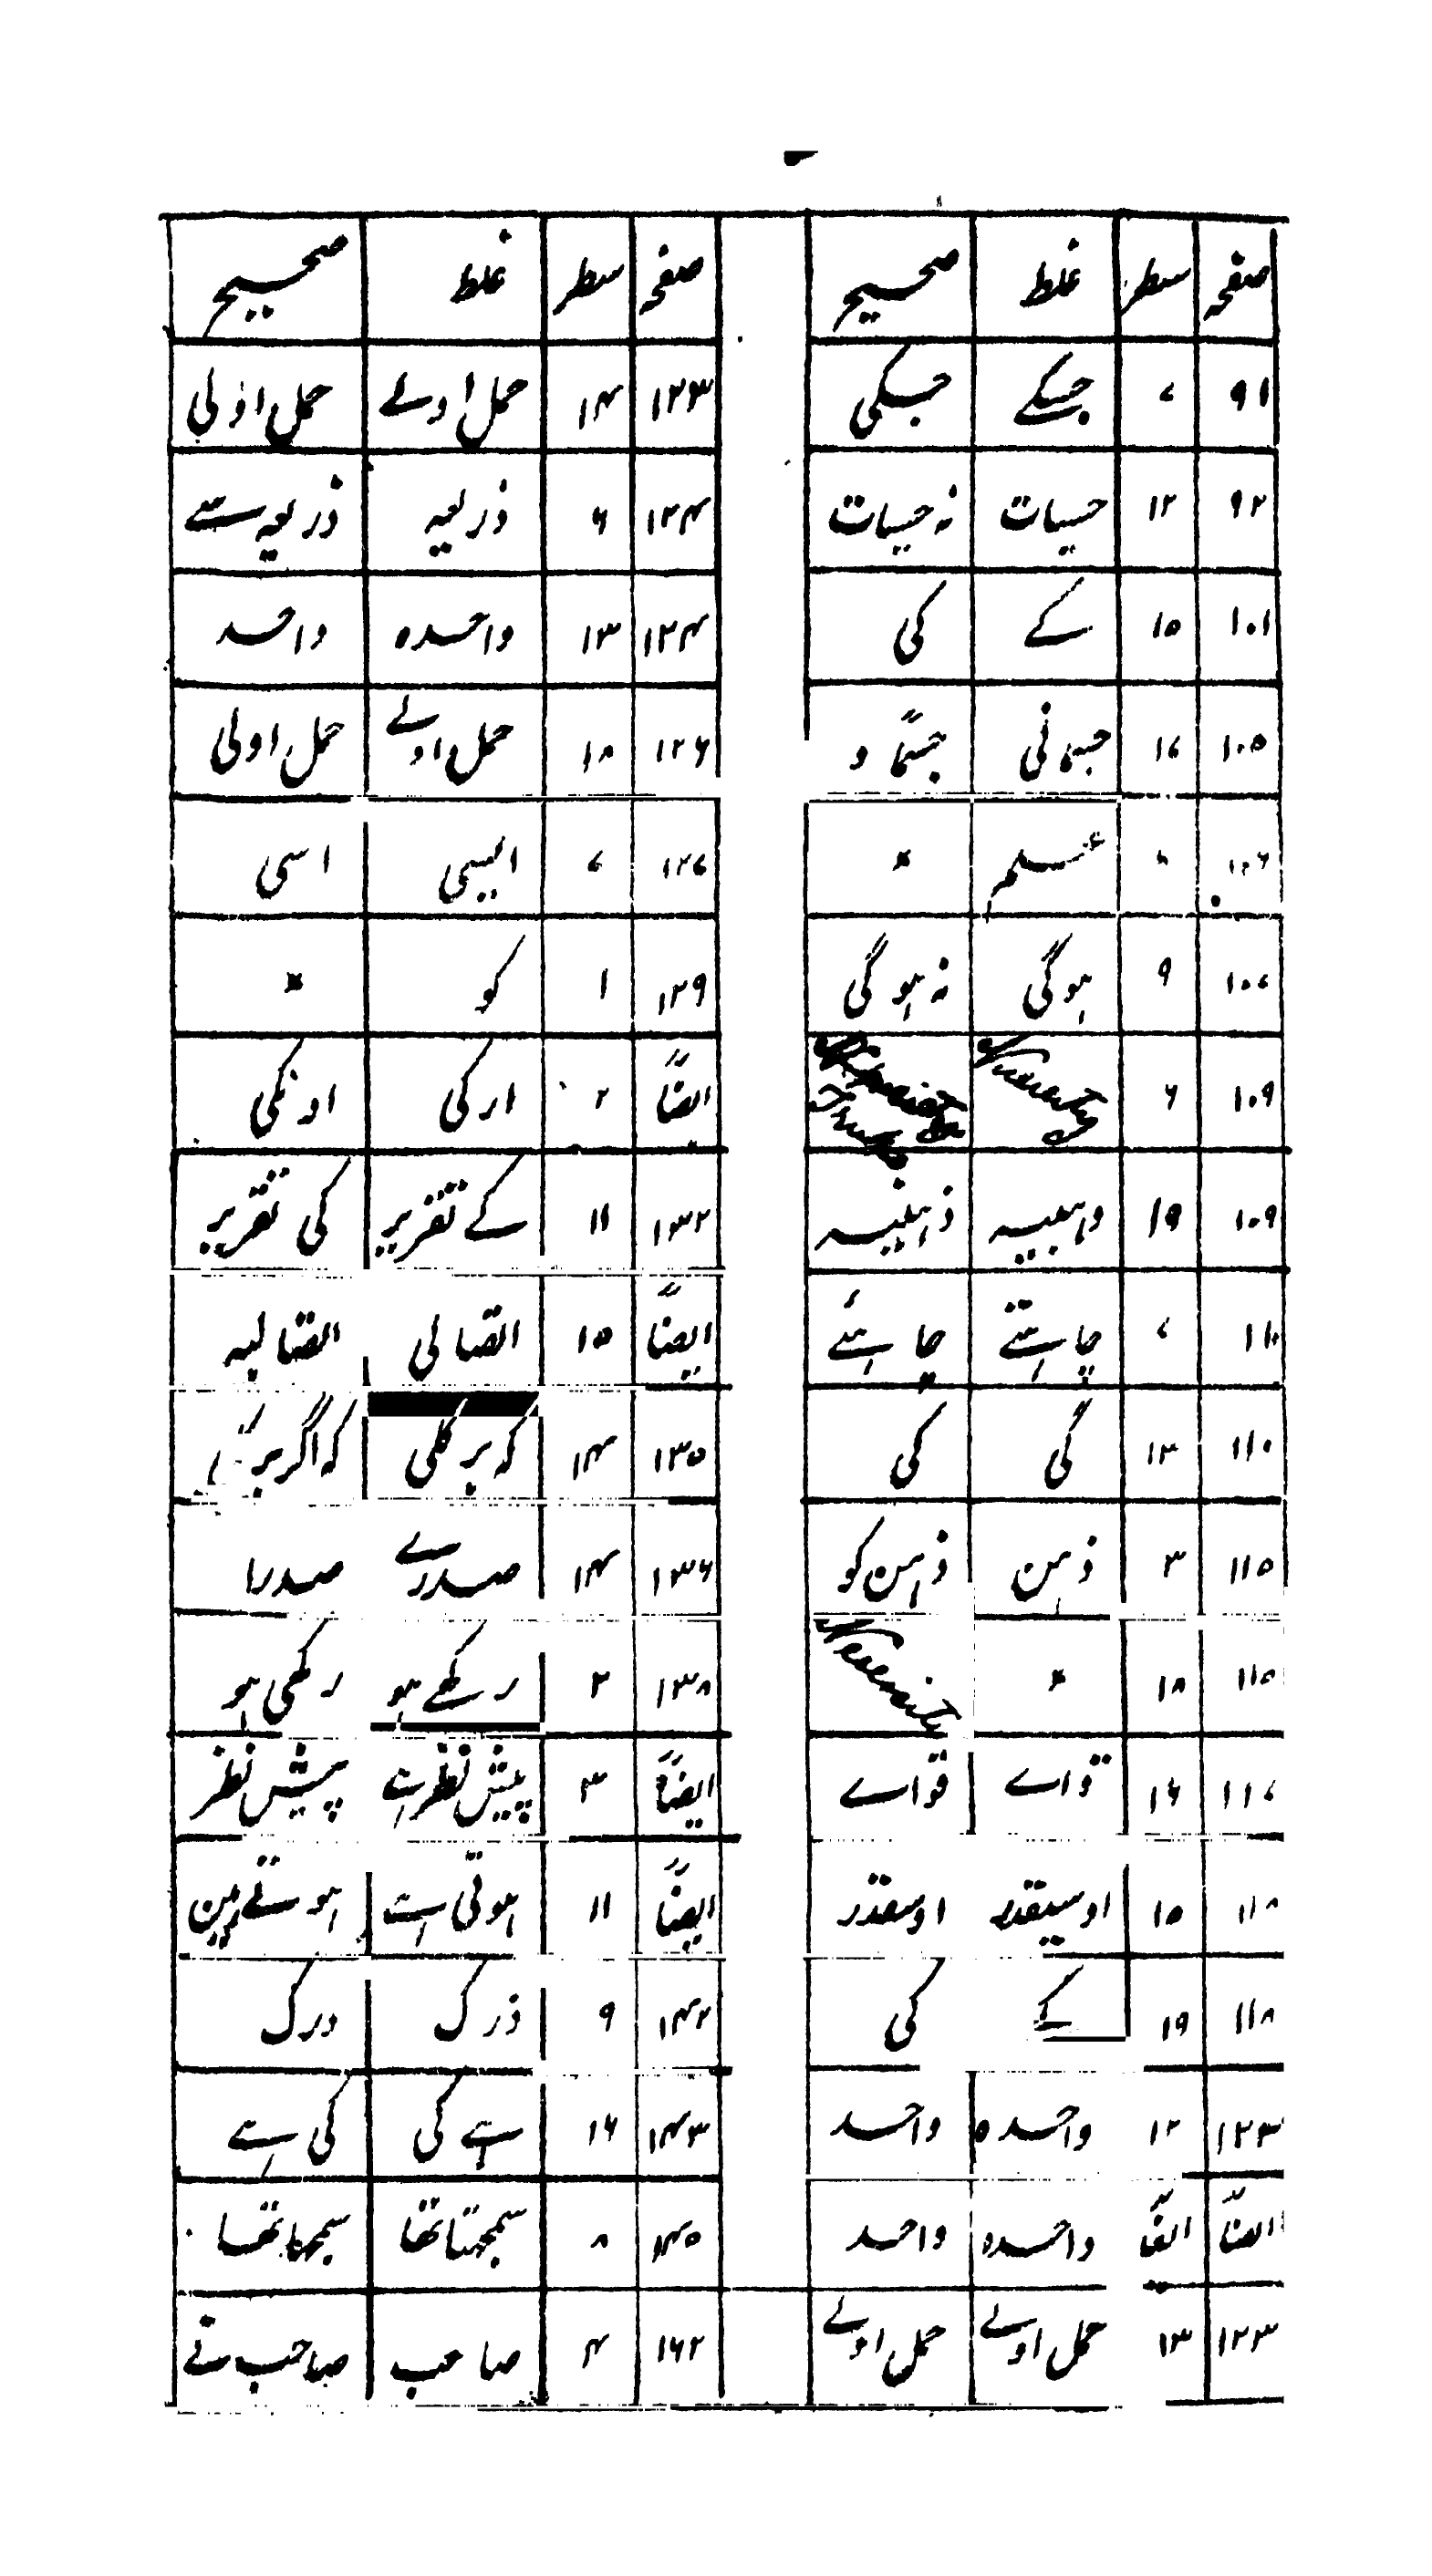 صفحہ سطر غلط صحیح
۹۱ ۷ جسکے جسکی
۹۲ ۱۲ حسیات نہ حسیات
۱۰۱ ۱۵ کے کی
۱۰۵ ۱۷ جسمانی جسماً و
۱۰۶ علم ×
۱۰۷ ۹ ہوگی نہ ہوگی
۱۰۹ ۶
۱۰۹ ۱۹ واہبیہ ذہنیہ
۱۱۰ ۷ چاہتے چاہئے
۱۱۰ ۱۳ گی کی
۱۱۵ ۳ ذہن ذہن کو
۱۱۵ ۱۸ × Necessity
۱۱۷ ۱۶ قواے قواے
۱۱۸ ۱۵ اوسیقدر اوسقدر
۱۱۸ ۱۹ کے کی
۱۲۳ ۱۲ واحدہ واحد
ایضاً ایضاً واحدہ واحد
۱۲۳ ۱۳ حمل اولے حمل اولے
صفحہ سطر غلط صحیح
۱۲۳ ۱۴ حمل اولے حمل اولی
۱۲۴ ۶ ذریعہ ذریعہ سے
۱۲۴ ۱۳ واحدہ واحد
۱۲۶ ۱۸ حمل اولے حمل اولی
۱۲۷ ۷ ایسی اسی
۱۲۹ ۱ کو ×
ایضاً ۲ ارکی اونکی
۱۳۲ ۱۱ کے تقریر کی تقریر
ایضاً ۱۵ اتصالی اتصالیہ
۱۳۵ ۱۴ کہ ہر کلی کہ اگر ہر
۱۳۶ ۱۴ صدرے صدرا
۱۳۸ ۲ رکھے ہو رکھی ہو
ایضاً ۳ پیش نظر ہے پیش نظر
ایضاً ۱۱ ہوتی ہے ہوتے ہین
۱۴۲ ۹ ذرک درک
۱۴۳ ۱۶ ہے کی کی ہے
۱۴۵ ۸ سمجھتا تھا سمجھا تھا
۱۶۲ ۴ صاحب صاحب نے